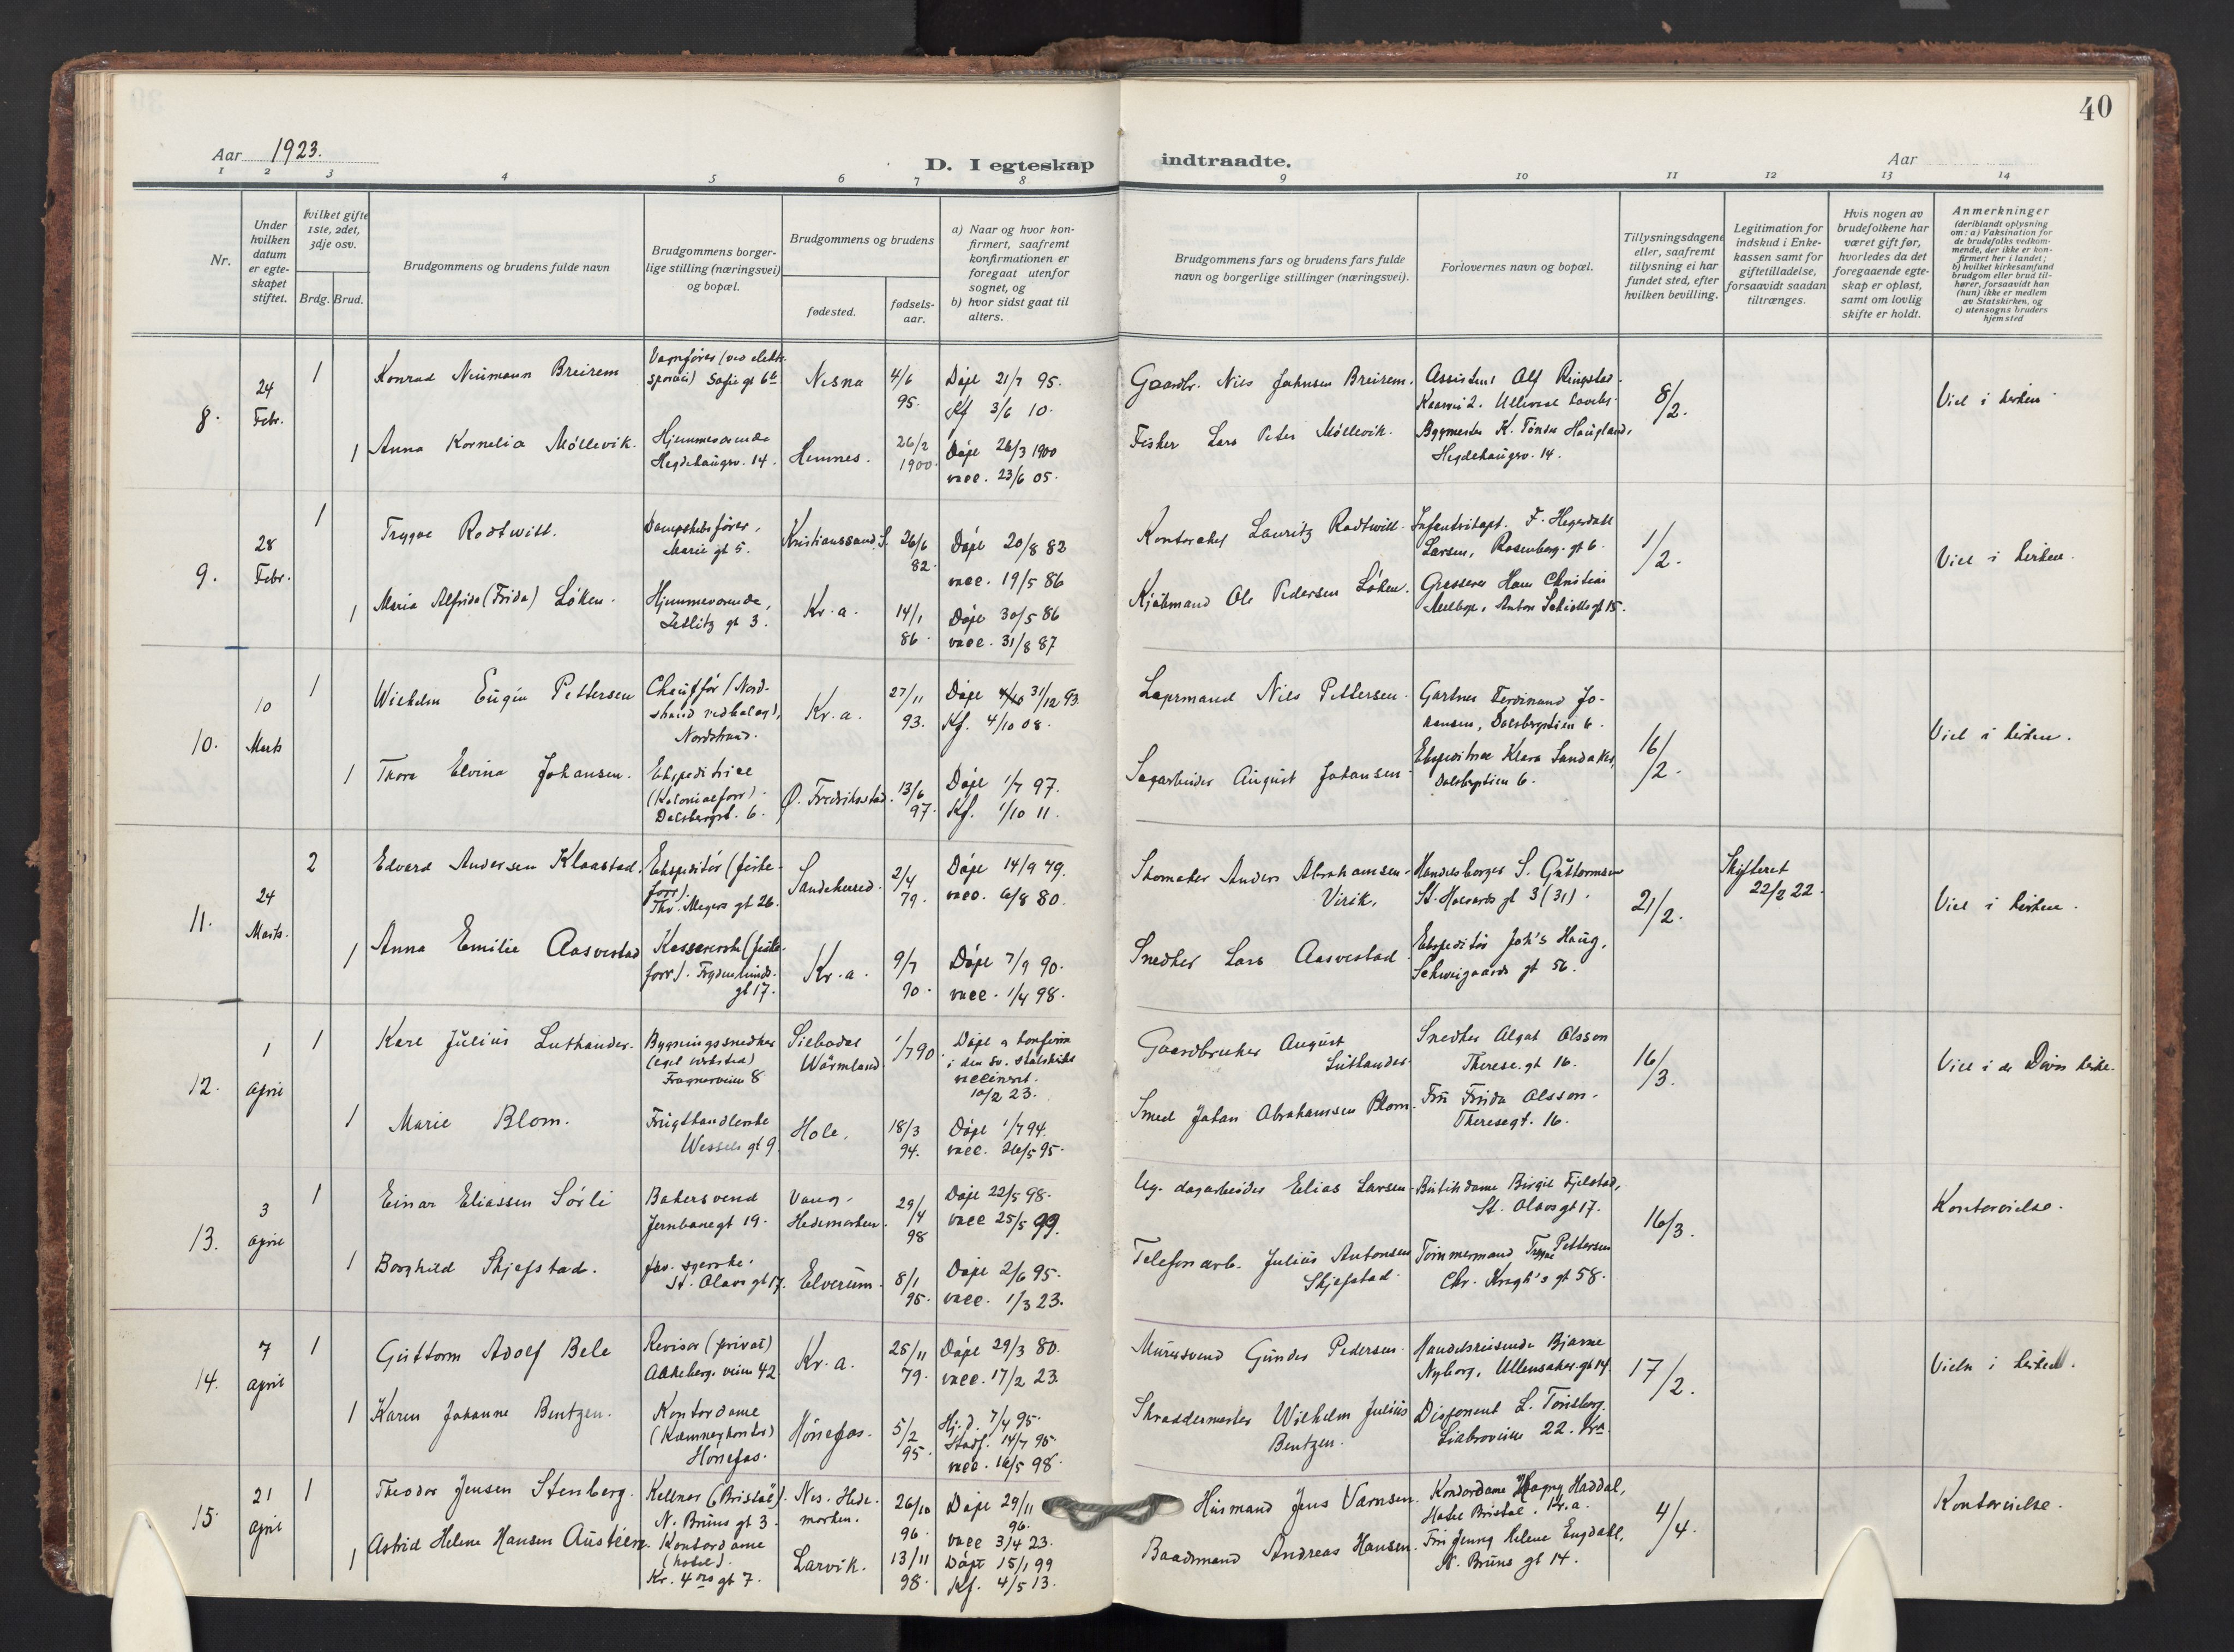 40
Aar 1923.
D. I egteskap indtraadte.
Aar
1 2 3 4 5 6 7 8 9 10 11 12 13 14
Nr.
Under
hvilken
datum
er egte-
skapet
stiftet.
Hvilket gifte
1ste, 2det,
3dje osv.
Brdg. Brud.
Brudgommens og brudens fulde navn
Brudgommens borger-
lige stilling (næringsvei)
og bopæl.
Brudgommens og brudens
fødested.
fødsels-
aar.
a) Naar og hvor kon-
firmert, saafremt
konfirmationen er
foregaat utenfor
sognet, og
b) hvor sidst gaat til
alters.
Brudgommens fars og brudens fars fulde
navn og borgerlige stillinger (næringsvei).
Forlovernes navn og bopæl.
Tillysningsdagene
eller, saafremt
tillysning ei har
fundet sted, efter
hvilken bevilling.
Legitimation for
indskud i Enke-
kassen samt for
giftetilladelse,
forsaavidt saadan
tiltrænges.
Hvis nogen av
brudefolkene har
været gift før,
hvorledes da det
foregaaende egte-
skap er opløst,
samt om lovlig
skifte er holdt.
Anmerkninger
(deriblandt oplysning
om: a) Vaksination for
de brudefolks vedkom-
mende, der ikke er kon-
firmert her i landet;
b) hvilket kirkesamfund
brudgom eller brud til-
hører, forsaavidt han
(hun) ikke er medlem
av Statskirken, og
c) utensogns bruders
hjemsted
8.
24
Febr.
1
Konrad Neumann Breirem
Vognfører (ved elektr.
sporvei) Sofie gt 6b
Nesna
4/6
95.
Døpt 21/7 95.
Kf 3/6 10.
Gaardbr. Nils Johnsen Breirem.
Assistent Alf Ringstad
Kaarvei 2. Ulleval Haveby
8/2.
Viet i kirken
1
Anna Kornelia Möllevik.
Hjemmeværende
Hegdehaugsv. 14.
Hemnes.
26/2
1900.
Døpt 26/3 1900
vacc. 23/6 05.
Fisker Lars Peter Möllevik.
Byggmester K. Tönder Haugland,
Hegdehaugsv. 14.
9.
28
Febr.
1
Trygve Rodtwitt.
Dampskibsfører,
Marie gt 5.
Kristianssand S.
26/6
82.
Døpt 20/8 82
vacc. 19/5 86
Kontorchef Lauritz Rodtwitt.
Infanterikapt. F. Hegerdahl
Larsen, Rosenborg. gt 6.
1/2.
Viet i kirken.
1
Maria Alfrida (Frida) Löken.
Hjemmeværende,
Zetlitz gt 3.
Kr.a.
14/1
86.
Døpt 30/5 86
vacc. 31/8 87
Kjøbmand Ole Pedersen Löken.
Grosserer Hans Christian
Mellbye, Anton Schiøtts gt 15.
10.
10
Marts
1
Wilhelm Eugen Pettersen
Chauffør (Nord-
strand vedhalag),
Nordstrand.
Kr.a.
27/11
93.
Døpt 31/12 93.
Kf. 4/10 08.
Lagermand Nils Pettersen.
Gartner Ferdinand Jo-
hansen, Dalsbergstien 6.
16/2.
Viet i kirken.
1
Thora Elvina Johansen.
Ekspeditrice
(Kolonialforr).
Dalsbergst. 6.
Ø. Fredrikstad.
13/6
97.
Døpt 1/7 97.
Kf. 1/10 11.
Sagarbeider August Johansen.
Ekspeditrice Klara Sandaker,
Dalsbergstien 6.
11.
24
Marts.
2
Edvard Andersen Klaastad.
Ekspeditör (fiske-
forr).
Thv. Meyers gt 26.
Sandeherred.
2/4
79.
Døpt 14/9 79.
vacc. 6/8 80.
Skomaker Anders Abrahamsen
Virik.
Handelsborger S. Guttormsen
St. Halvards gt 3 (31).
21/2.
Skifteret
22/2 22.
Viet i kirken.
1
Anna Emilie Aasvestad
Kassererske (fiske-
forr). Frydenlunds-
gt 17.
Kr.a.
9/7
90.
Døpt 7/9 90.
vacc. 1/4 98.
Snedker Lars Aasvestad
Ekspeditör Joh's Haug,
Schweigaards gt 56.
12.
1
April
1
Karl Julius Luthander.
Bygningssnedker
(eget verksted)
Frognerveien 8
Silbodal
Wärmland
1/7 90.
Døpt og konfirm
i den sv. statskirke
vaccinert.
10/2 23.
Gaardbruker August
Luthander.
Snedker Algot Olsson
Therese. gt 16.
16/3.
Viet i de Døves kirke.
1
Marie Blom.
Frugthandlerske
Wessels gt 9.
Hole.
18/3
94.
Døpt 1/7 94.
vacc. 26/5 95.
Smed Johan Abrahamsen Blom.
Fru Frida Olsson.
Theresegt. 16.
13.
3
April
1
Einar Eliassen Sörli
Bakersvend
Jernbanegt 19.
Vang,
Hedemarken.
29/4
98
Døpt 22/5 98.
vacc 25/5 99.
Ug. dagarbeider Elias Larsen.
Butikdame Birgit Fjelstad,
St. Olavs gt 17.
16/3
Kontorvielse.
1
Borghild Skjefstad.
fav. syerske.
St. Olavs gt 17.
Elverum.
8/1
95.
Døpt 2/6 95.
vacc. 1/3 23.
Telefonarb. Julius Antonsen
Skjefstad.
Tömmermand Trygve Pettersen
Chr. Krogh's gt 58.
14.
7
April
1
Guttorm Adolf Bele
Revisor (privat)
Aakeberg. veien 42
Kr.a.
25/11
79.
Døpt 29/3 80.
vacc. 17/2 23.
Murersvend Gunder Pedersen.
Handelsreisende Bjarne
Nyborg, Ullensaker. gt 14.
17/2.
Viet i kirken.
1
Karen Johanne Bentzen.
Kontordame
(Kæmnerkontor)
Hønefos.
Hønefos.
5/2
95.
Hj. d. 7/4 95.
Stadf. 14/7 95.
vacc. 16/5 98.
Skreddermester Wilhelm Julius
Bentzen.
Disponent L. Tönsberg.
Liabroveien 22. Kra.
15.
21
April
1
Theodor Jensen Stenberg.
Kellner ("Bristol").
N. Bruns gt 3.
Nes. Hede-
marken.
26/10
96.
Døpt 29/11
96.
vacc 3/4 23.
Husmand Jens Varnsen.
Kontordame Magny Haddal,
Hotel Bristol. Kr.a.
4/4.
Kontorvielse.
1
Astrid Helene Hansen Austeen.
Kontordame
(hotel).
Kr. 4des gt 7.
Larvik.
13/11
98.
Døpt 15/1 99
Kf. 4/5 13.
Baadsmand Andreas Hansen.
Fru Jenny Helene Engdahl,
N. Bruns gt 14.